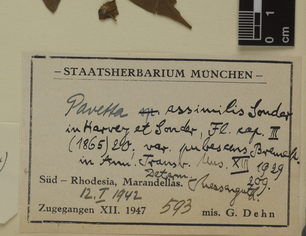 0 1
- STAATSHERBARIUM MÜNCHEN -
Pavetta sp. assimilis Sonder
in Harvey et Sonder, Fl. cap. III
(1865) 20. var. pubescens Bremek.
in Ann. Transv. Mus. XIII 1929
209.
Süd - Rhodesia, Marandellas.
12. I 1942
Zugegangen XII. 1947 593 mis. G. Dehn